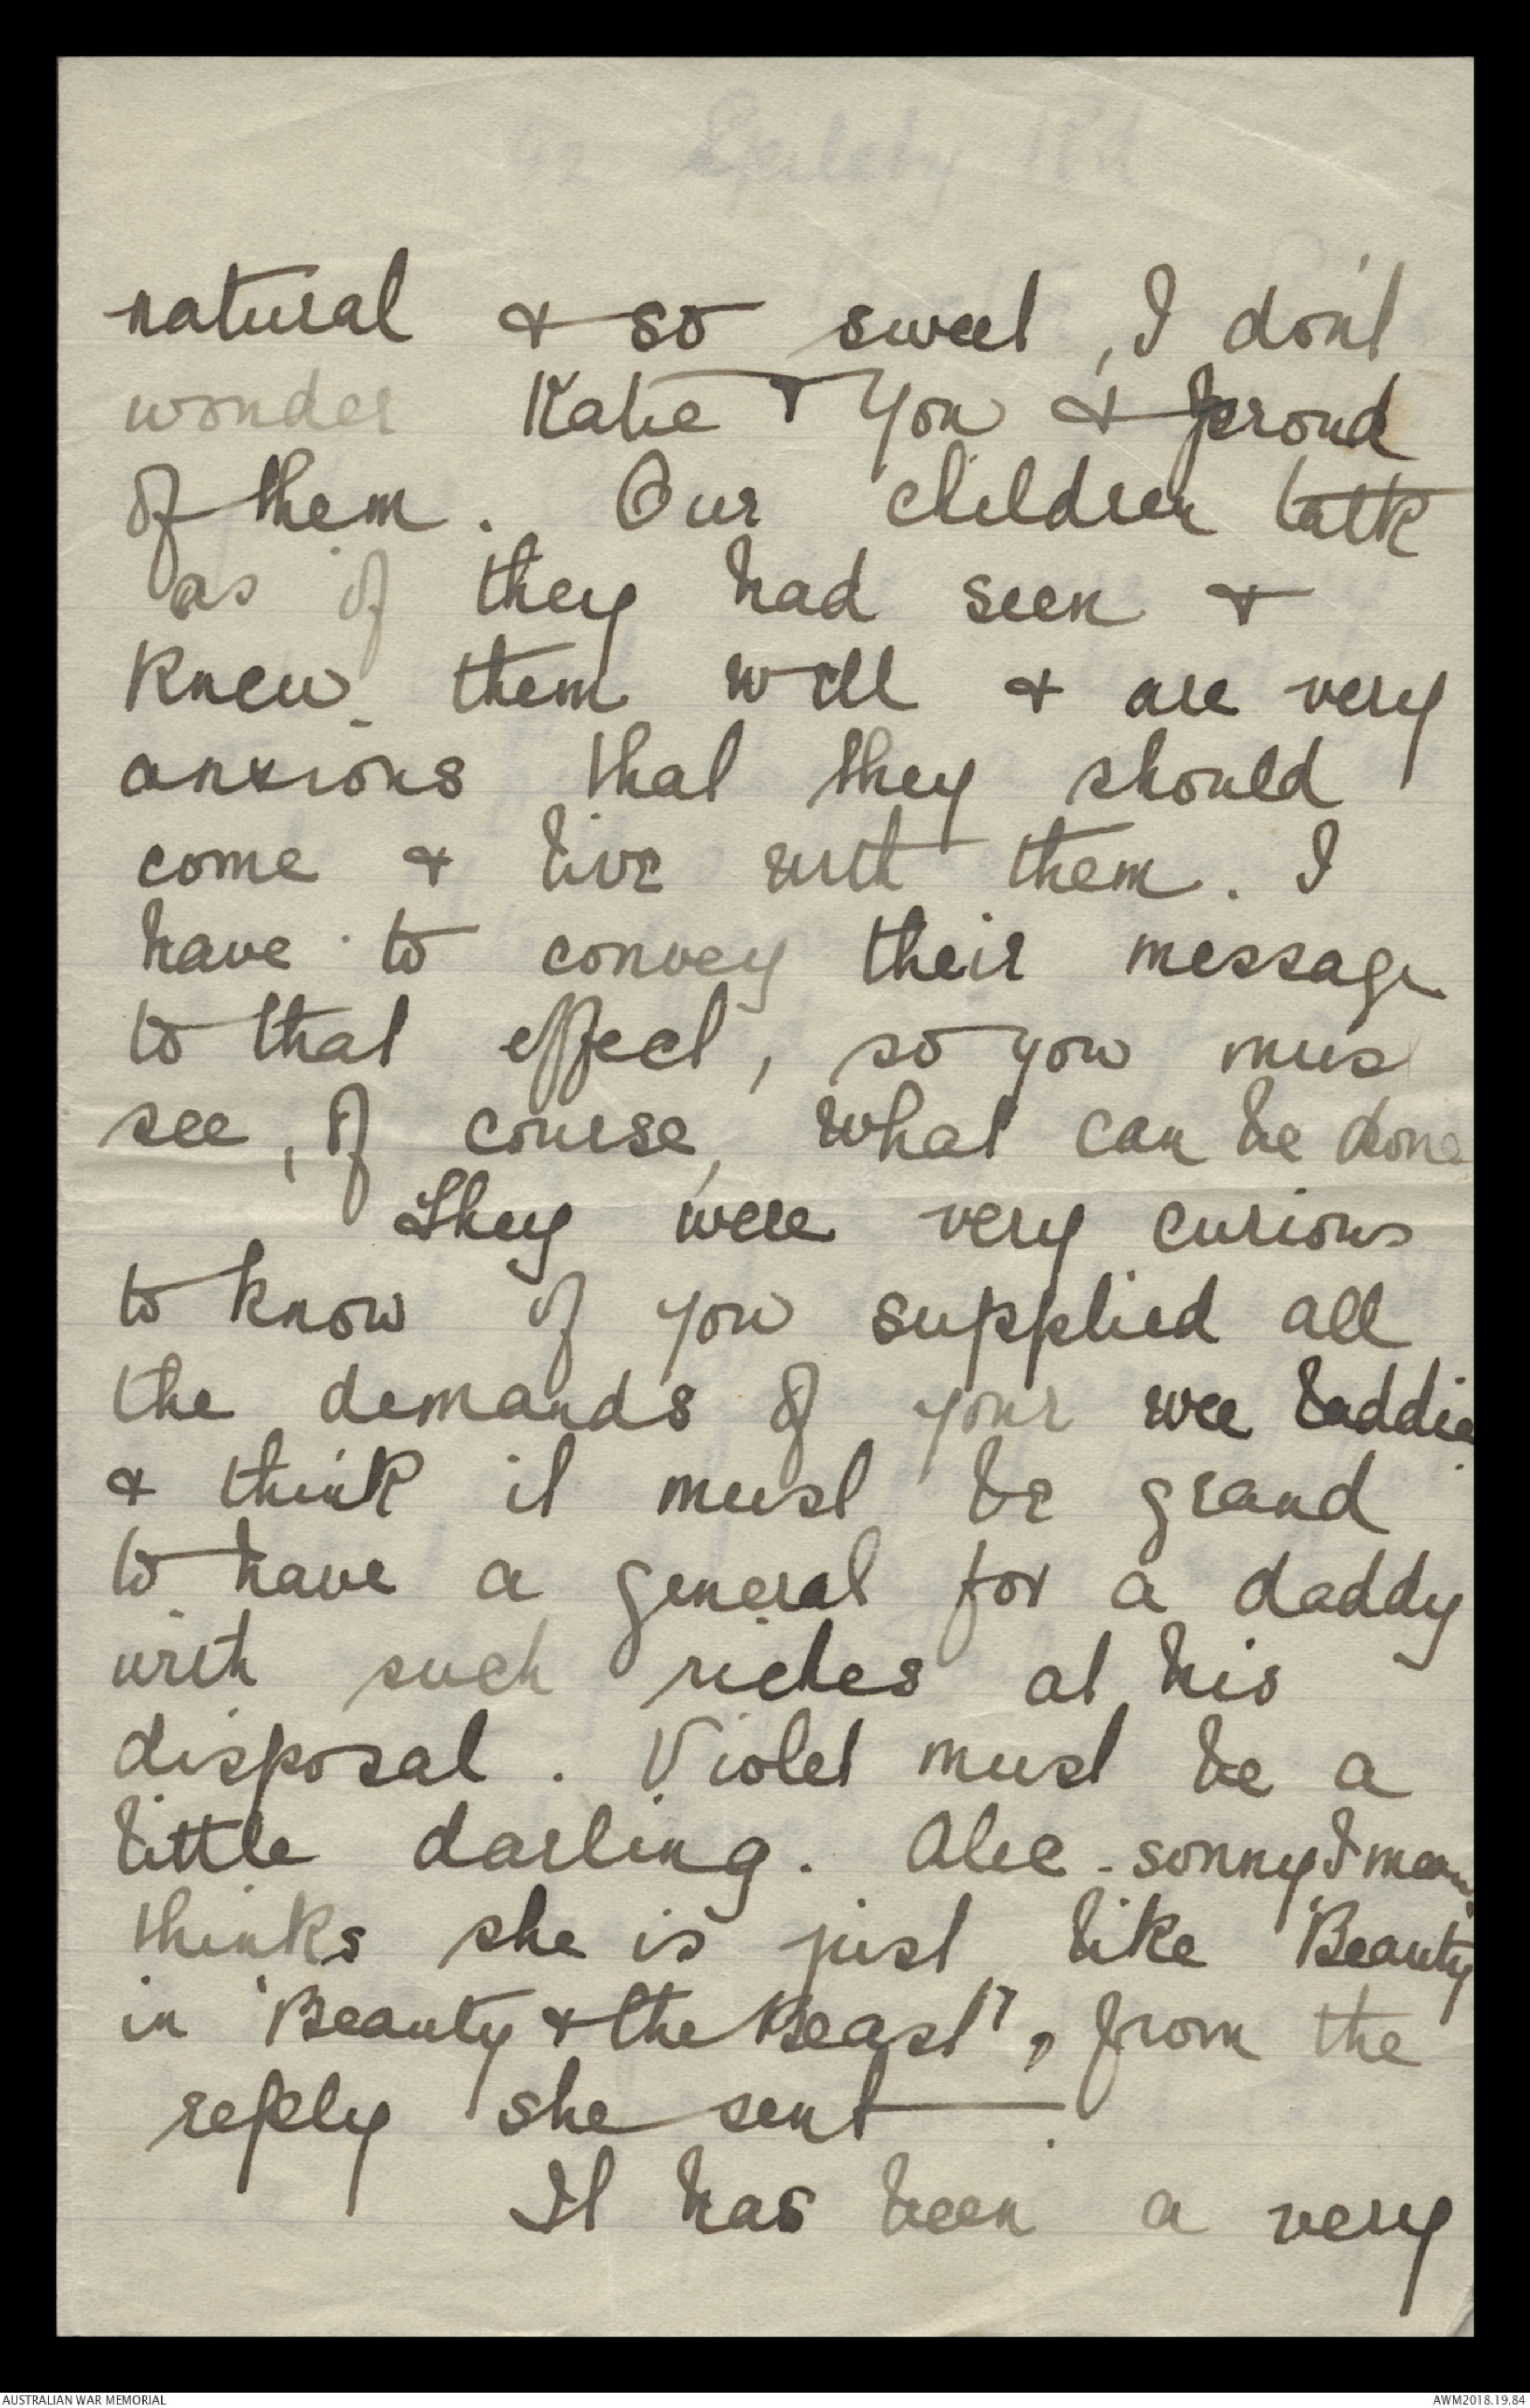 natural & so sweet, I don't
wonder Katie & You & proud
of them. Our children talk
as if they had seen &
knew them well & are very
anxious that they should
come & live with them. I
have to convey their message
to that effect, so you mus
see, of course, what can be done
They were very curious
to know if you supplied all
the demands of your wee laddie
& think it must be grand
to have a general for a daddy
with such riches at his
disposal. Violet must be a
little darling. Alec - sonny I mean,
thinks she is just like 'Beauty
in 'Beauty & the Beast", from the
reply she sent.
It has been a very
AUSTRALIAN WAR MEMORIAL
AWM2018.19.84